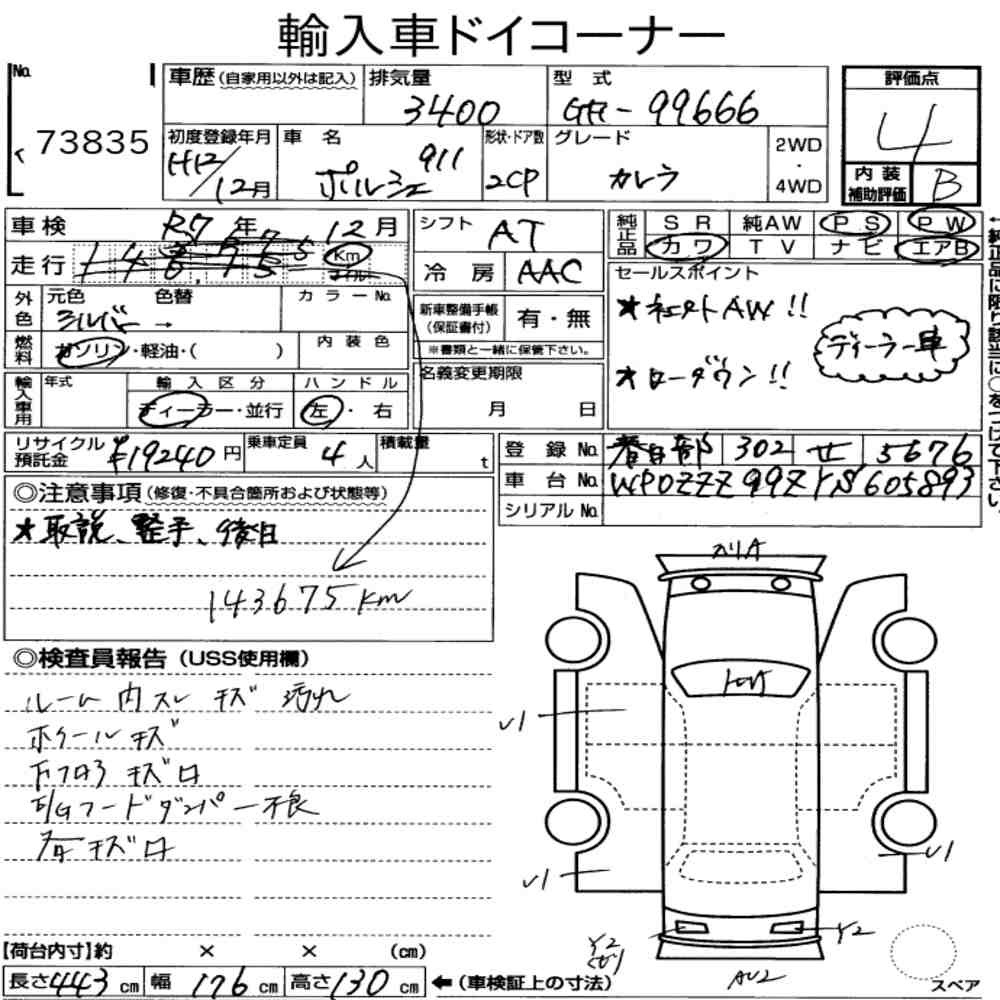 輸入車ドイコーナー
No.
73835
車歴 (自家用以外は記入)
排気量
3400
型式
GH-99666
評価点
4
初度登録年月
H12/12月
車名
ポルシェ 911
形状・ドア数
2CP
グレード
カレラ
2WD
・
4WD
内装
補助評価
B
車検 R7年 12月
シフト AT
純正品 SR 純AW PS PW
カワ TV ナビ エアB
走行
Km
マイル
冷房 AAC
セールスポイント
★ AW!!
★ローダウン!!
ディーラー車
外色
元色 色替
シルバー →
カラーNo.
新車整備手帳
(保証書付)
有・無
※書類と一緒に保管下さい。
燃料
ガソリン・軽油・( )
内装色
名義変更期限
月 日
輸入車用
年式
輸入区分
ディーラー・並行
ハンドル
左・右
リサイクル
預託金
¥19240円
乗車定員
4人
積載量
t
登録No. 春日部 302 せ 5676
車台No. WP0ZZZ99ZYS605893
シリアルNo.
◎注意事項 (修復・不具合箇所および状態等)
★取説、整手、後日
143675km
◎検査員報告 (USS使用欄)
ルーム内スレ キズ 汚れ
ホイールキズ
キズ
フードダンパー不良
キズ
V1
V1
V1
Y2
Y2
AU2
スペア
【荷台内寸】約 × × (cm)
長さ443cm 幅176cm 高さ130cm ←(車検証上の寸法)